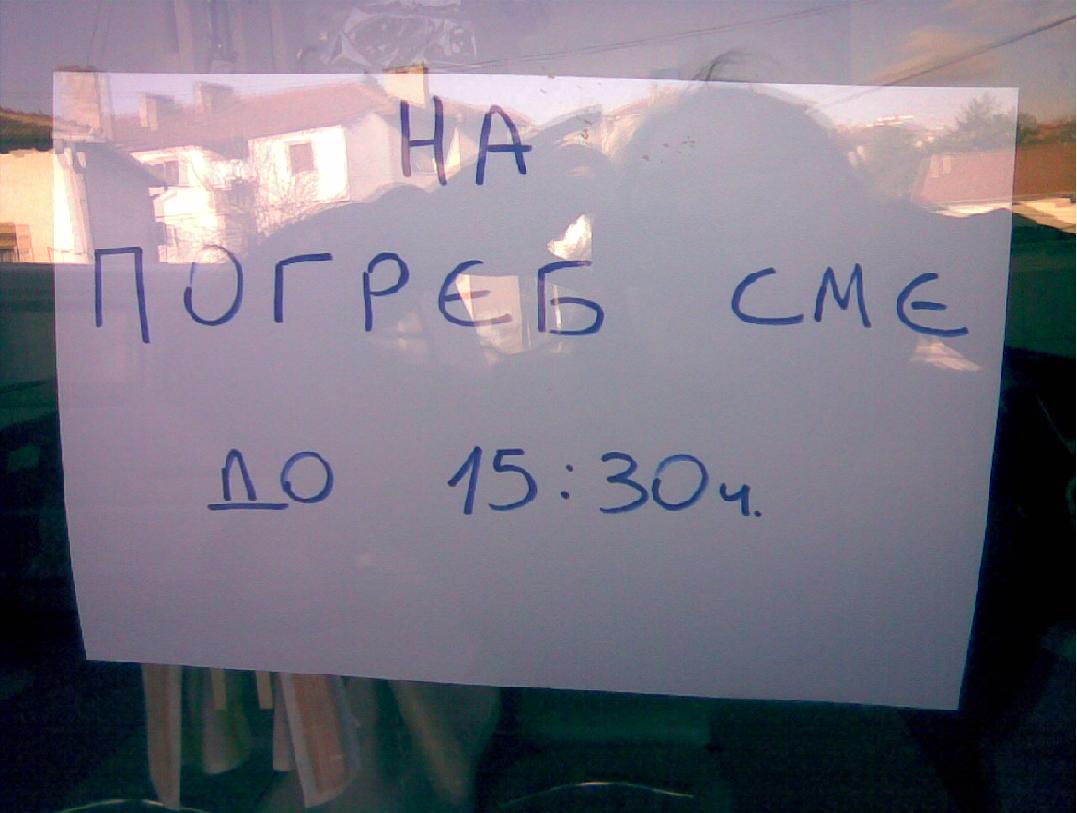 НА
ПОГРЕБ СМЕ
ДО 15:30ч.